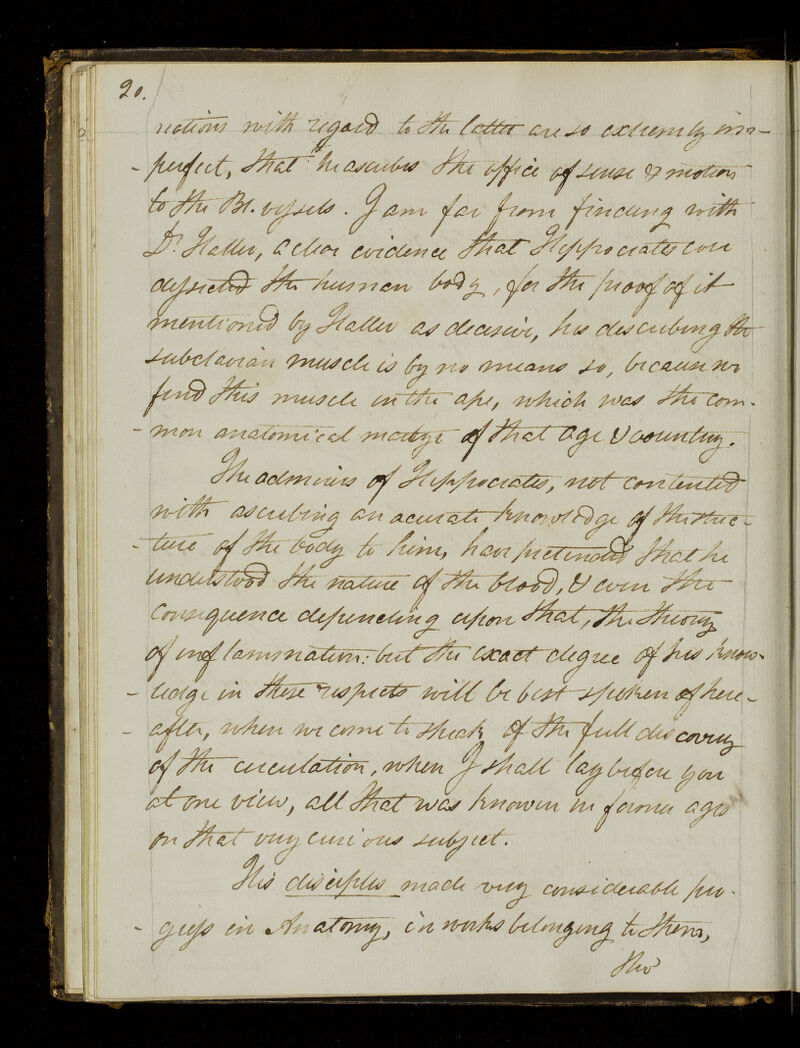 20.
notions with regard to the latter are so extremely im-
- perfect, that he ascribes the office of sense & motion
to the Bl. vessels. I am far from finding with
Dr. Haller, a clear evidence that Hippocrates ever
dissected the human body, for the proof of it
mentioned by Haller as decisive, his describing the
subclavian muscle is by no means so, because we
find this muscle in the ape, which was the com-
- mon anatomical of that age & country.
The admirers of Hippocrates, not contented
with ascribing an acurate knowledge of the struc-
- ture of the body to him, have pretended that he
understood the nature of the blood, & even the
consequence depending upon that, the theory
of inflammation: but the exact degree of his know-
- ledge in these respects will be best spoken of here-
- after, when we come to speak of the full discovery
of the circulation, when I shall lay before you
at one view, all that was known in former ages
on that very curious subject.
His disciples made very considerable pro-
- gress in Anatomy, in works belonging to them,
tho'